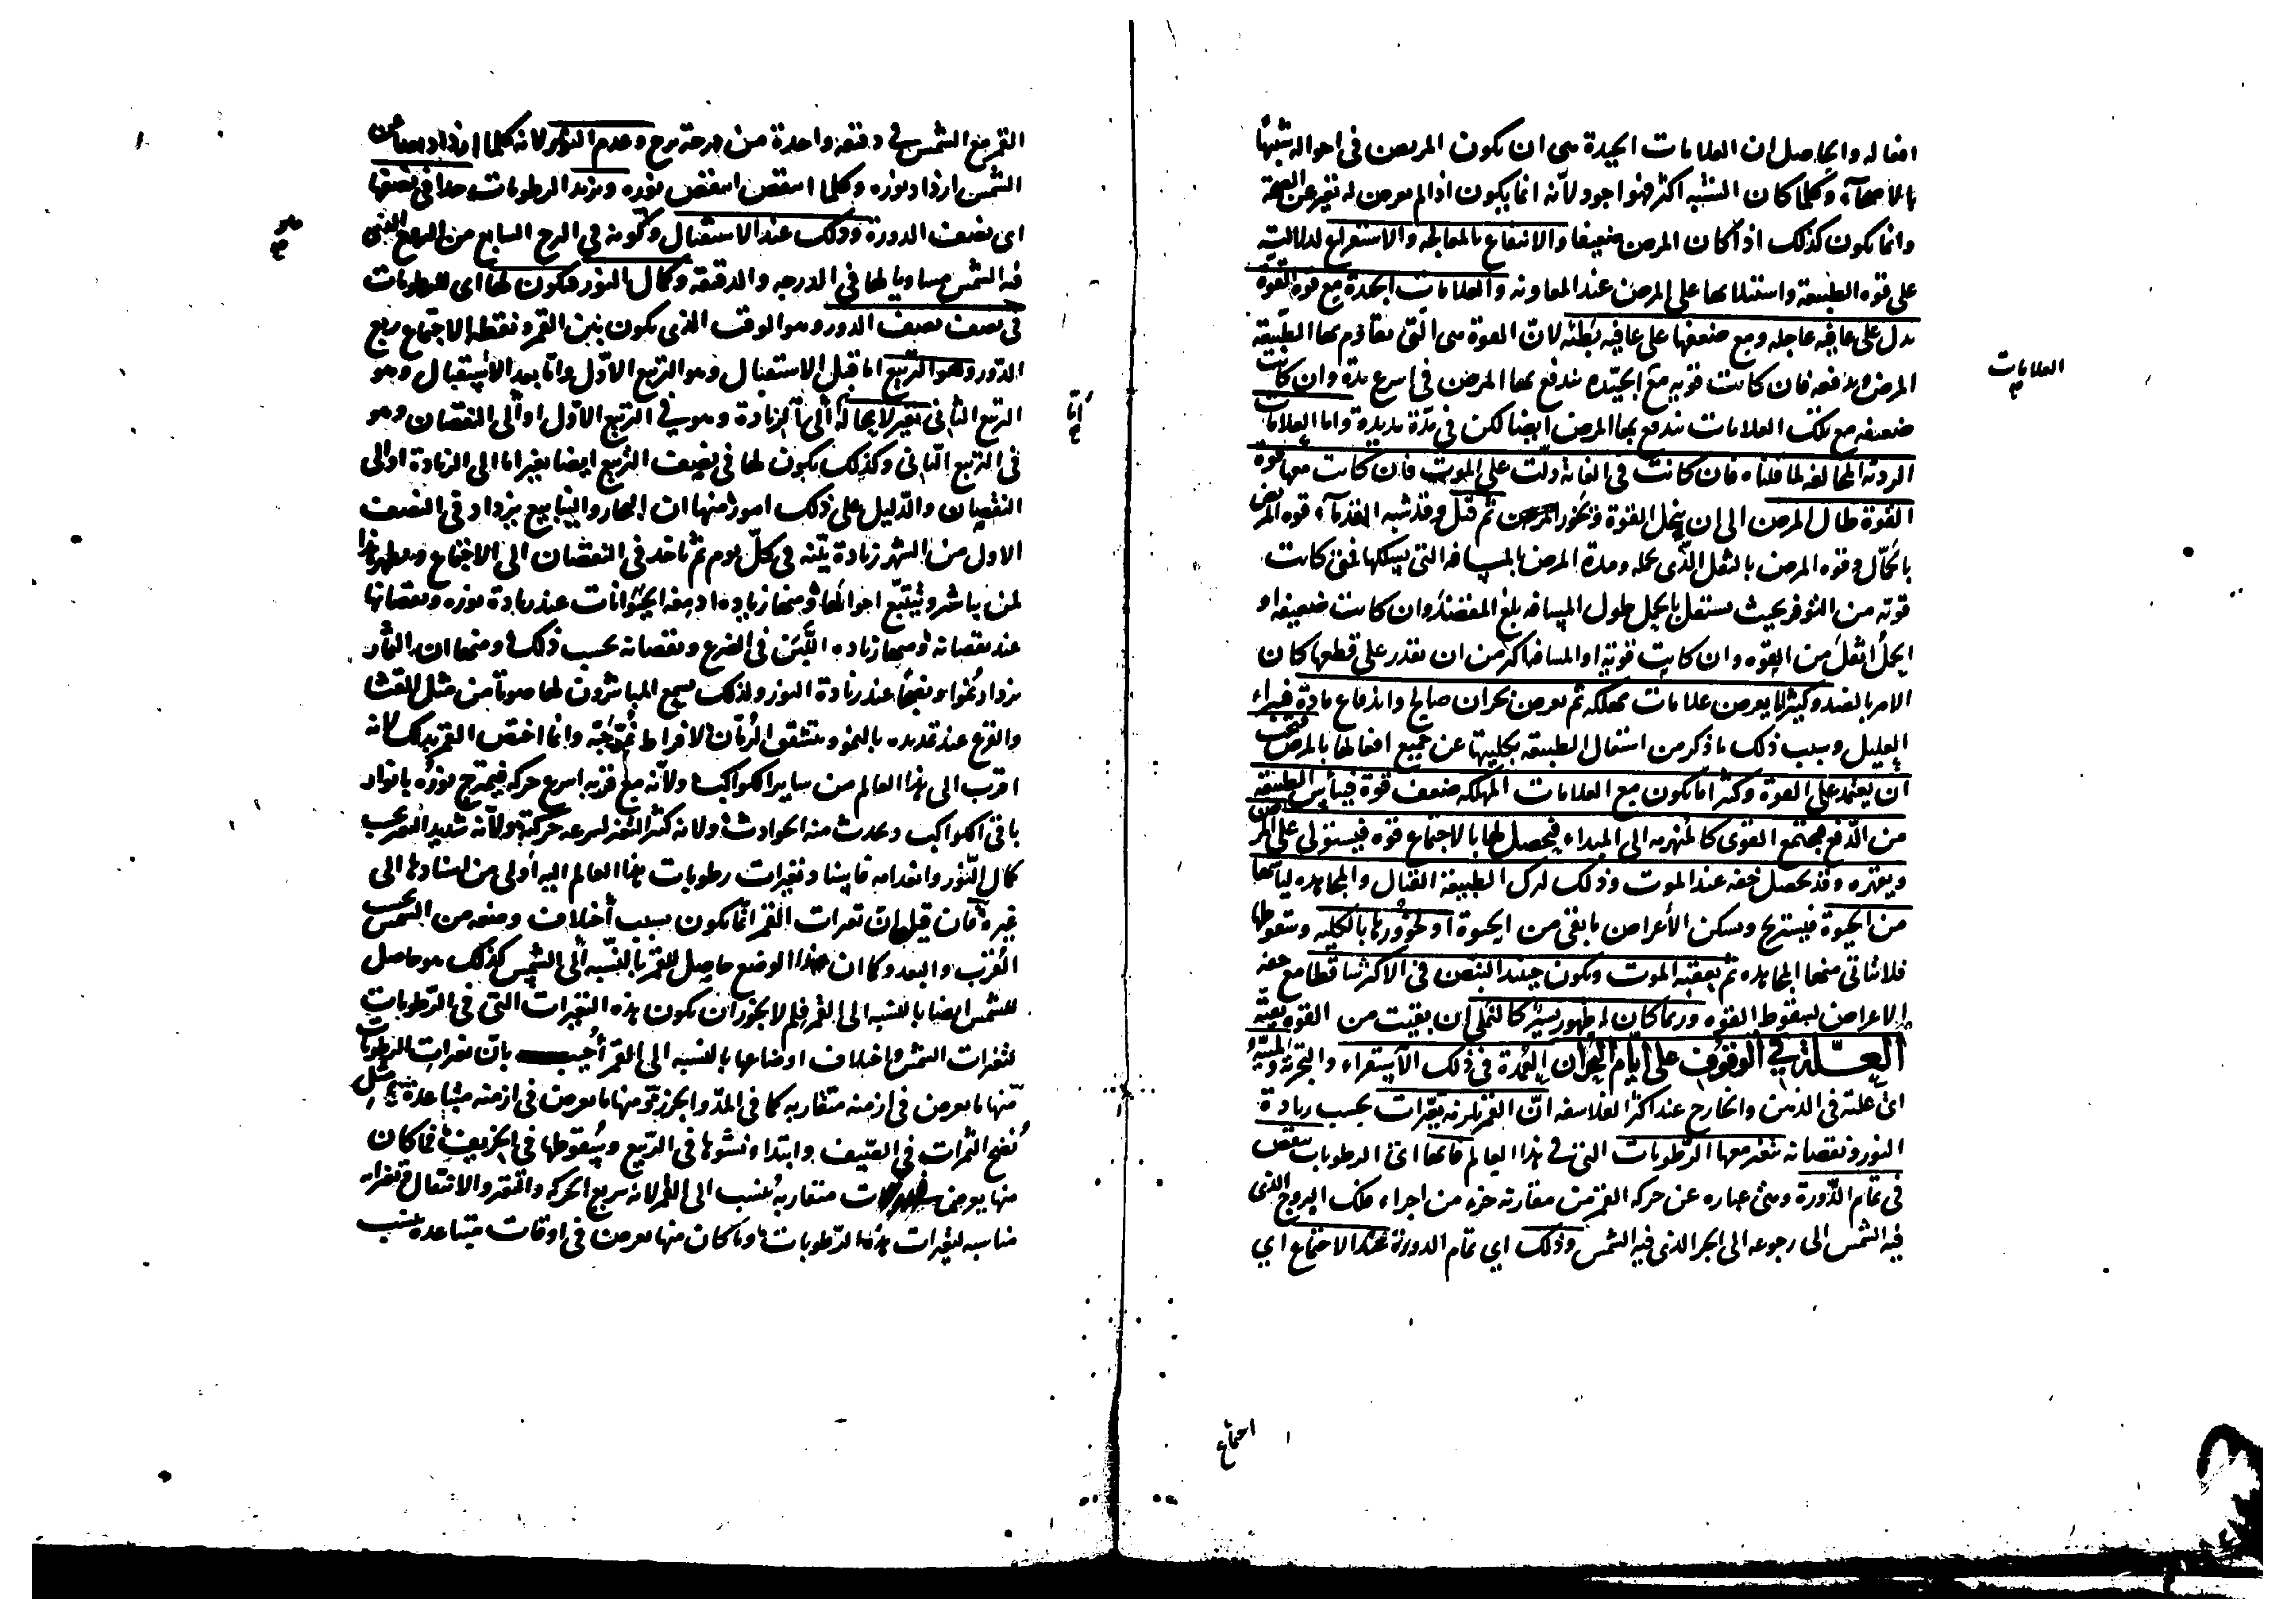 افعاله والحاصل ان العلامات الجيدة هى ان يكون المريض فى احواله شبيها
بالاصحآء وكلما كان التشبه اكثر فهو اجود لأنه انما يكون اذا لم يعرض له تغير عن الصحة
وانما يكون كذلك اذا كان المرض ضعيفا والانتفاع بالمعالجه والاستفراغ لدلالته
على قوه الطبيعة واستيلائها على المرض عند المعاونه والعلامات الجيدة مع قوة القوة
يدل على عافيه عاجله ومع ضعفها على عافيه بطئه لان القوة هى التى تقاوم بها الطبيعة
المرض وتدفعه فان كانت قويه مع الجيده يندفع بها المرض فى اسرع مدة وان كانت
ضعيفه مع تلك العلامات يندفع بها المرض ايضا لكن فى مدة مديدة واما العلامات
العلامات
الرديه المخالفه لما قلناه فان كانت فى الغاية دلت على الموت فان كانت معها قوه
القوة طال المرض الى ان ينحل القوة وتخور ثم قتل وقد شبه القدمآء قوه المريض
بالحمّال وقوه المرض بالثقل الذى يحمله ومدة المرض بالمسافه التى يسلكها فمتى كانت
قوته من التوفر بحيث يستقل بالحمل طول المسافه بلغ المقصد وان كانت ضعيفه او
الحمل اثقل من القوه وان كانت قويه او المسافه اكثر من ان يقدر على قطعها كان
الامر بالضد وكثيرا ما يعرض علامات مهلكه ثم يعرض بحران صالح واندفاع مادة فيبراء
العليل وسبب ذلك ما ذكر من اشتغال الطبيعه بكليتها عن جميع افعالها بالمرض فيجب
ان يعتمد على القوة وكثيرا ما يكون مع العلامات المهلكه ضعف قوة فيأس الطبيعة
من الدفع فيجتمع القوى كالمنهزمه الى المبداء فيحصل لها بالاجتماع قوه فيستولى على المرض
ويقهره وقد يحصل خفه عند الموت وذلك لترك الطبيعة القتال والمجاهده ليأسها
من الحيوة فيستريح ويسكن الأعراض ما بقى من الحيوة او لخورها بالكليه وسقوطها
فلا تتأتى منها المجاهده ثم يعقبه الموت ويكون حينئذ النبض فى الاكثر ساقطا مع خفه
الاعراض لسقوط القوه وربما كان له ظهور يسير كالنملى ان بقيت من القوه بقيّة
العلة فى الوقوف على ايام البحران العمدة فى ذلك الاستقراء والتجربة ولميّته
اى علته فى الذهن والخارج عند اكثر الفلاسفه انّ القمر يلزمه تغيّرات بحسب زيادة
النور ونقصانه يتغير معها الرطوبات التى فى هذا العالم فانها اى الرطوبات ينقص
فى تمام الدّورة وهى عباره عن حركه القمر من مفارقه جزء من اجزاء فلك البروج الذى
فيه الشمس الى رجوعه الى الجزء الذى فيه الشمس وذلك اى تمام الدورة عند الاجتماع اى
اجتماع
القمر مع الشمس فى دقيقه واحدة من درجة برج وعدم النور لانه كلما ازداد بعدا عن
الشمس ازداد نوره وكلما انتقص انتقص نوره وتزيد الرطوبات جدا فى نصفها
اى نصف الدورة وذلك عند الاستقبال وكونه فى البرج السابع من البرج الذى
فيه الشمس مساويا لها فى الدرجه والدقيقة وكمال النور فيكون لها اى للرطوبات
فى نصف نصف الدور وهو الوقت الذى يكون بين القمر ونقطة الاجتماع ربع
الدّور وهو التربيع اما قبل الاستقبال وهو التربيع الاوّل وامّا بعد الاستقبال وهو
التربيع الثانى تغير لا محالة امّا الى الزيادة وهو فى التربيع الاول او الى النقصان وهو
امّا
فى التربيع الثانى وكذلك يكون لها فى نصف التربيع ايضا تغير اما الى الزيادة او الى
النقصان والدّليل على ذلك امور منها ان البحار والينابيع يزداد فى النصف
الاول من الشهر زيادة بيّنه فى كلّ يوم ثم تاخذ فى النقصان الى الاجتماع ويظهر هذا
لمن باشر وتتبّع احوالها ومنها زياده ادمغه الحيوانات عند زيادة نوره ونقصانها
عند نقصانه ومنها زياده اللّبن فى الضرع ونقصانه بحسب ذلك ومنها ان الثمار
يزداد نموا ونضجا عند زيادة النور ولذلك يسمع المباشرون لها صوتا من مثل القثا
والقرع عند تمديده بالنمو ويتشقق الرمّان لافراط نموّ حبّه وانما اختص القمر بذلك لانه
اقرب الى هذا العالم من ساير الكواكب ولانّه مع قربه اسرع حركه فيمتزج نوره بانوار
باقى الكواكب ويحدث منه الحوادث ولانه كثير التغير لسرعه حركته ولانّه شديد التغير بحسب
كمال النّور وانعدامه فاستناد تغيرات رطوبات هذا العالم اليه أولى من اسنادها الى
غيره فان قيل انّ تغيرات القمر انّما يكون بسبب اختلاف وضعه من الشمس بحسب
القرب والبعد وكما ان هذا الوضع حاصل للقمر بالنّسبه الى الشمس كذلك هو حاصل
للشمس ايضا بالنسبه الى القمر فلم لا يجوز ان يكون هذه التغيرات التى فى الرّطوبات
لتغيرات الشمس واختلاف اوضاعها بالنسبه الى القمر أجيب بانّ تغيرات الرطوبات
منها ما يعرض فى ازمنه متقاربه كما فى المدّ والجزر ومنها ما يعرض فى ازمنه متباعدة مثل
نضج الثمرات فى الصّيف وابتداء نشوها فى الرّبيع وسقوطها فى الخريف فما كان
منها يعرض متقاربة ينسب الى القمر لانه سريع الحركه والتغير والانتقال وتغيراته
مناسبه لتغيرات هذه الرّطوبات وما كان منها يعرض فى اوقات متباعده ينسب